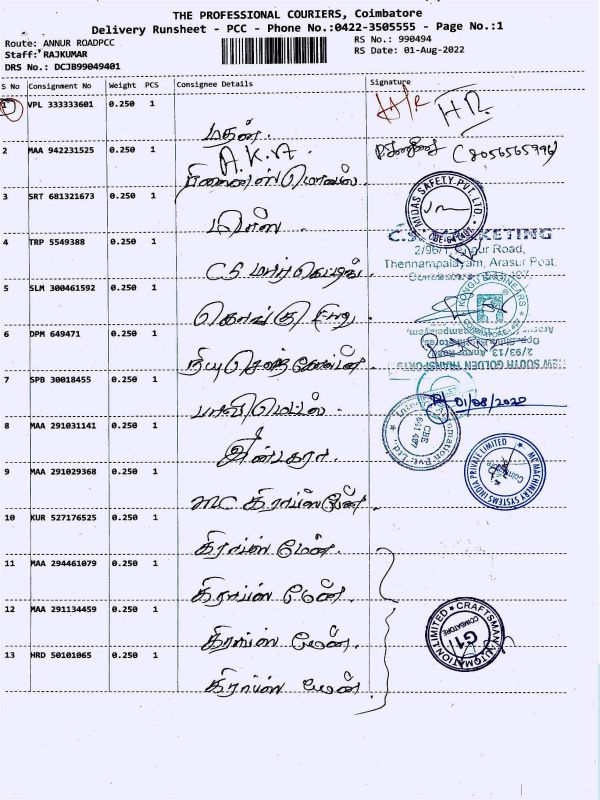 THE PROFESSIONAL COURIERS, Coimbatore
Delivery Runsheet - PCC - Phone No.:0422-3505555 - Page No.:1
Route: ANNUR ROADPCC
RS No.: 990494
Staff: RAJKUMAR
RS Date: 01-Aug-2022
DRS No.: DCJB99049401
S No Consignment No Weight PCS Consignee Details Signature
1 VPL 333333601 0.250 1
மதன்.
2 MAA 942231525 0.250 1
A.K.A.
3 SRT 681321673 0.250 1
MIDAS SAFETY PVT. LTD.
4 TRP 5549388 0.250 1
CS மார்கெட்டிங்
C.S. MARKETING
2/96/1, Annur Road,
Thennampalayam, Arasur Post,
5 SLM 300461592 0.250 1
கொங்கு
KONGU ENGINEERS
6 DPM 649471 0.250 1
நியு சவுத் கோல்டன்
2/93/13, Annur Road
NEW SOUTH GOLDEN TRANSPORTS
7 SPB 30018455 0.250 1
மெட்டல்ஸ்.
01/08/2022
8 MAA 291031141 0.250 1
CBE
641 407
9 MAA 291029368 0.250 1
MC கிராப்ஸ்மேன்
MC MACHINERY SYSTEMS INDIA PRIVATE LIMITED
10 KUR 527176525 0.250 1
கிராப்ஸ் மேன்.
11 MAA 294461079 0.250 1
கிராப்ஸ் மேன்.
12 MAA 291134459 0.250 1
கிராப்ஸ் மேன்.
CRAFTSMAN AUTOMATION LIMITED
COIMBATORE
G1
13 HRD 50101065 0.250 1
கிராப்ஸ் மேன்.